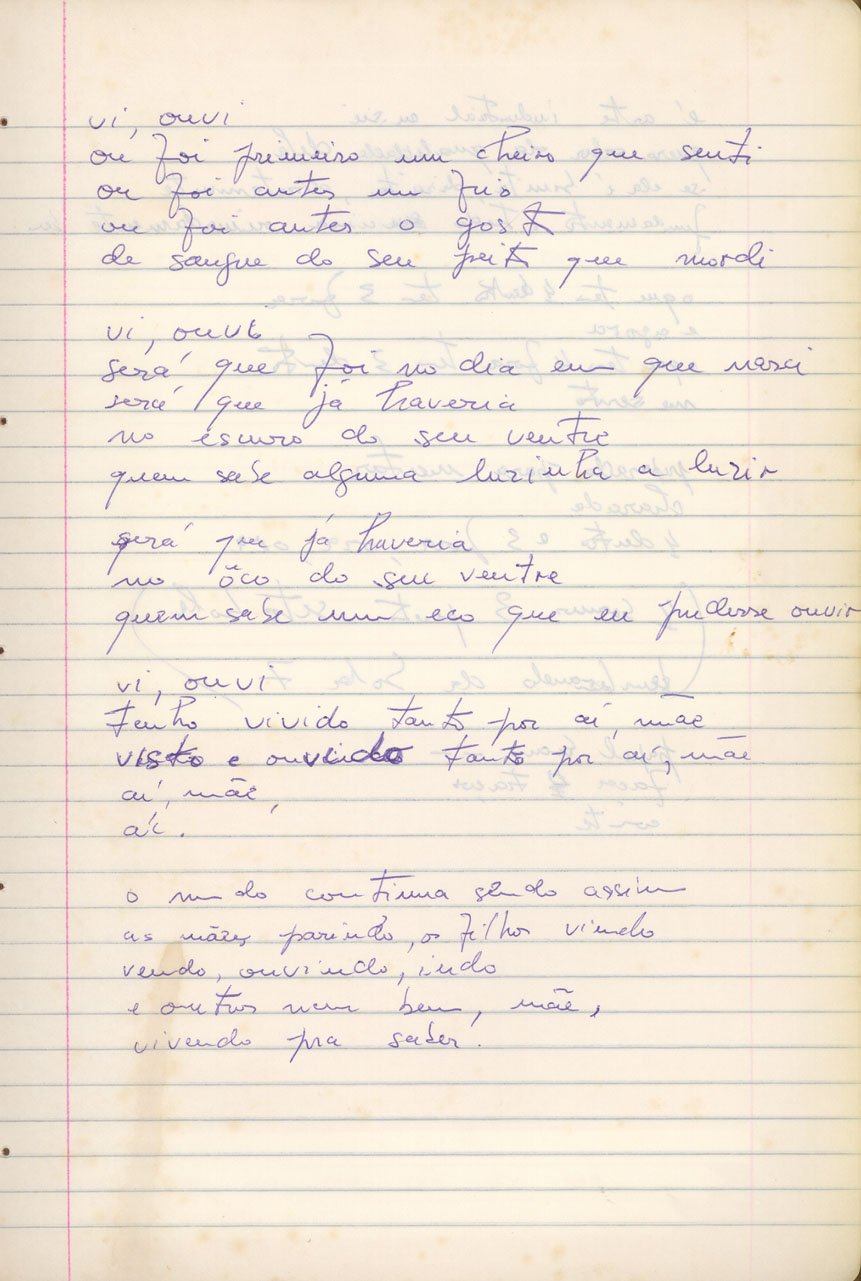 vi, ouvi
ou foi primeiro um cheiro que senti
ou foi antes um frio
ou foi antes o gosto
de sangue do seu peito que mordi
vi, ouvi
será que foi no dia em que nasci
será que já haveria
no escuro do seu ventre
quem sabe alguma luzinha a luzir
será que já haveria
no ôco do seu ventre
quem sabe um eco que eu pudesse ouvir
vi, ouvi
tenho vivido tanto por aí, mãe
visto e ouvido tanto por aí, mãe
aí, mãe,
aí.
o mundo continua sendo assim
as mães parindo, os filhos vindo
vendo, ouvindo, indo
e outros nem bem, mãe,
vivendo pra saber.